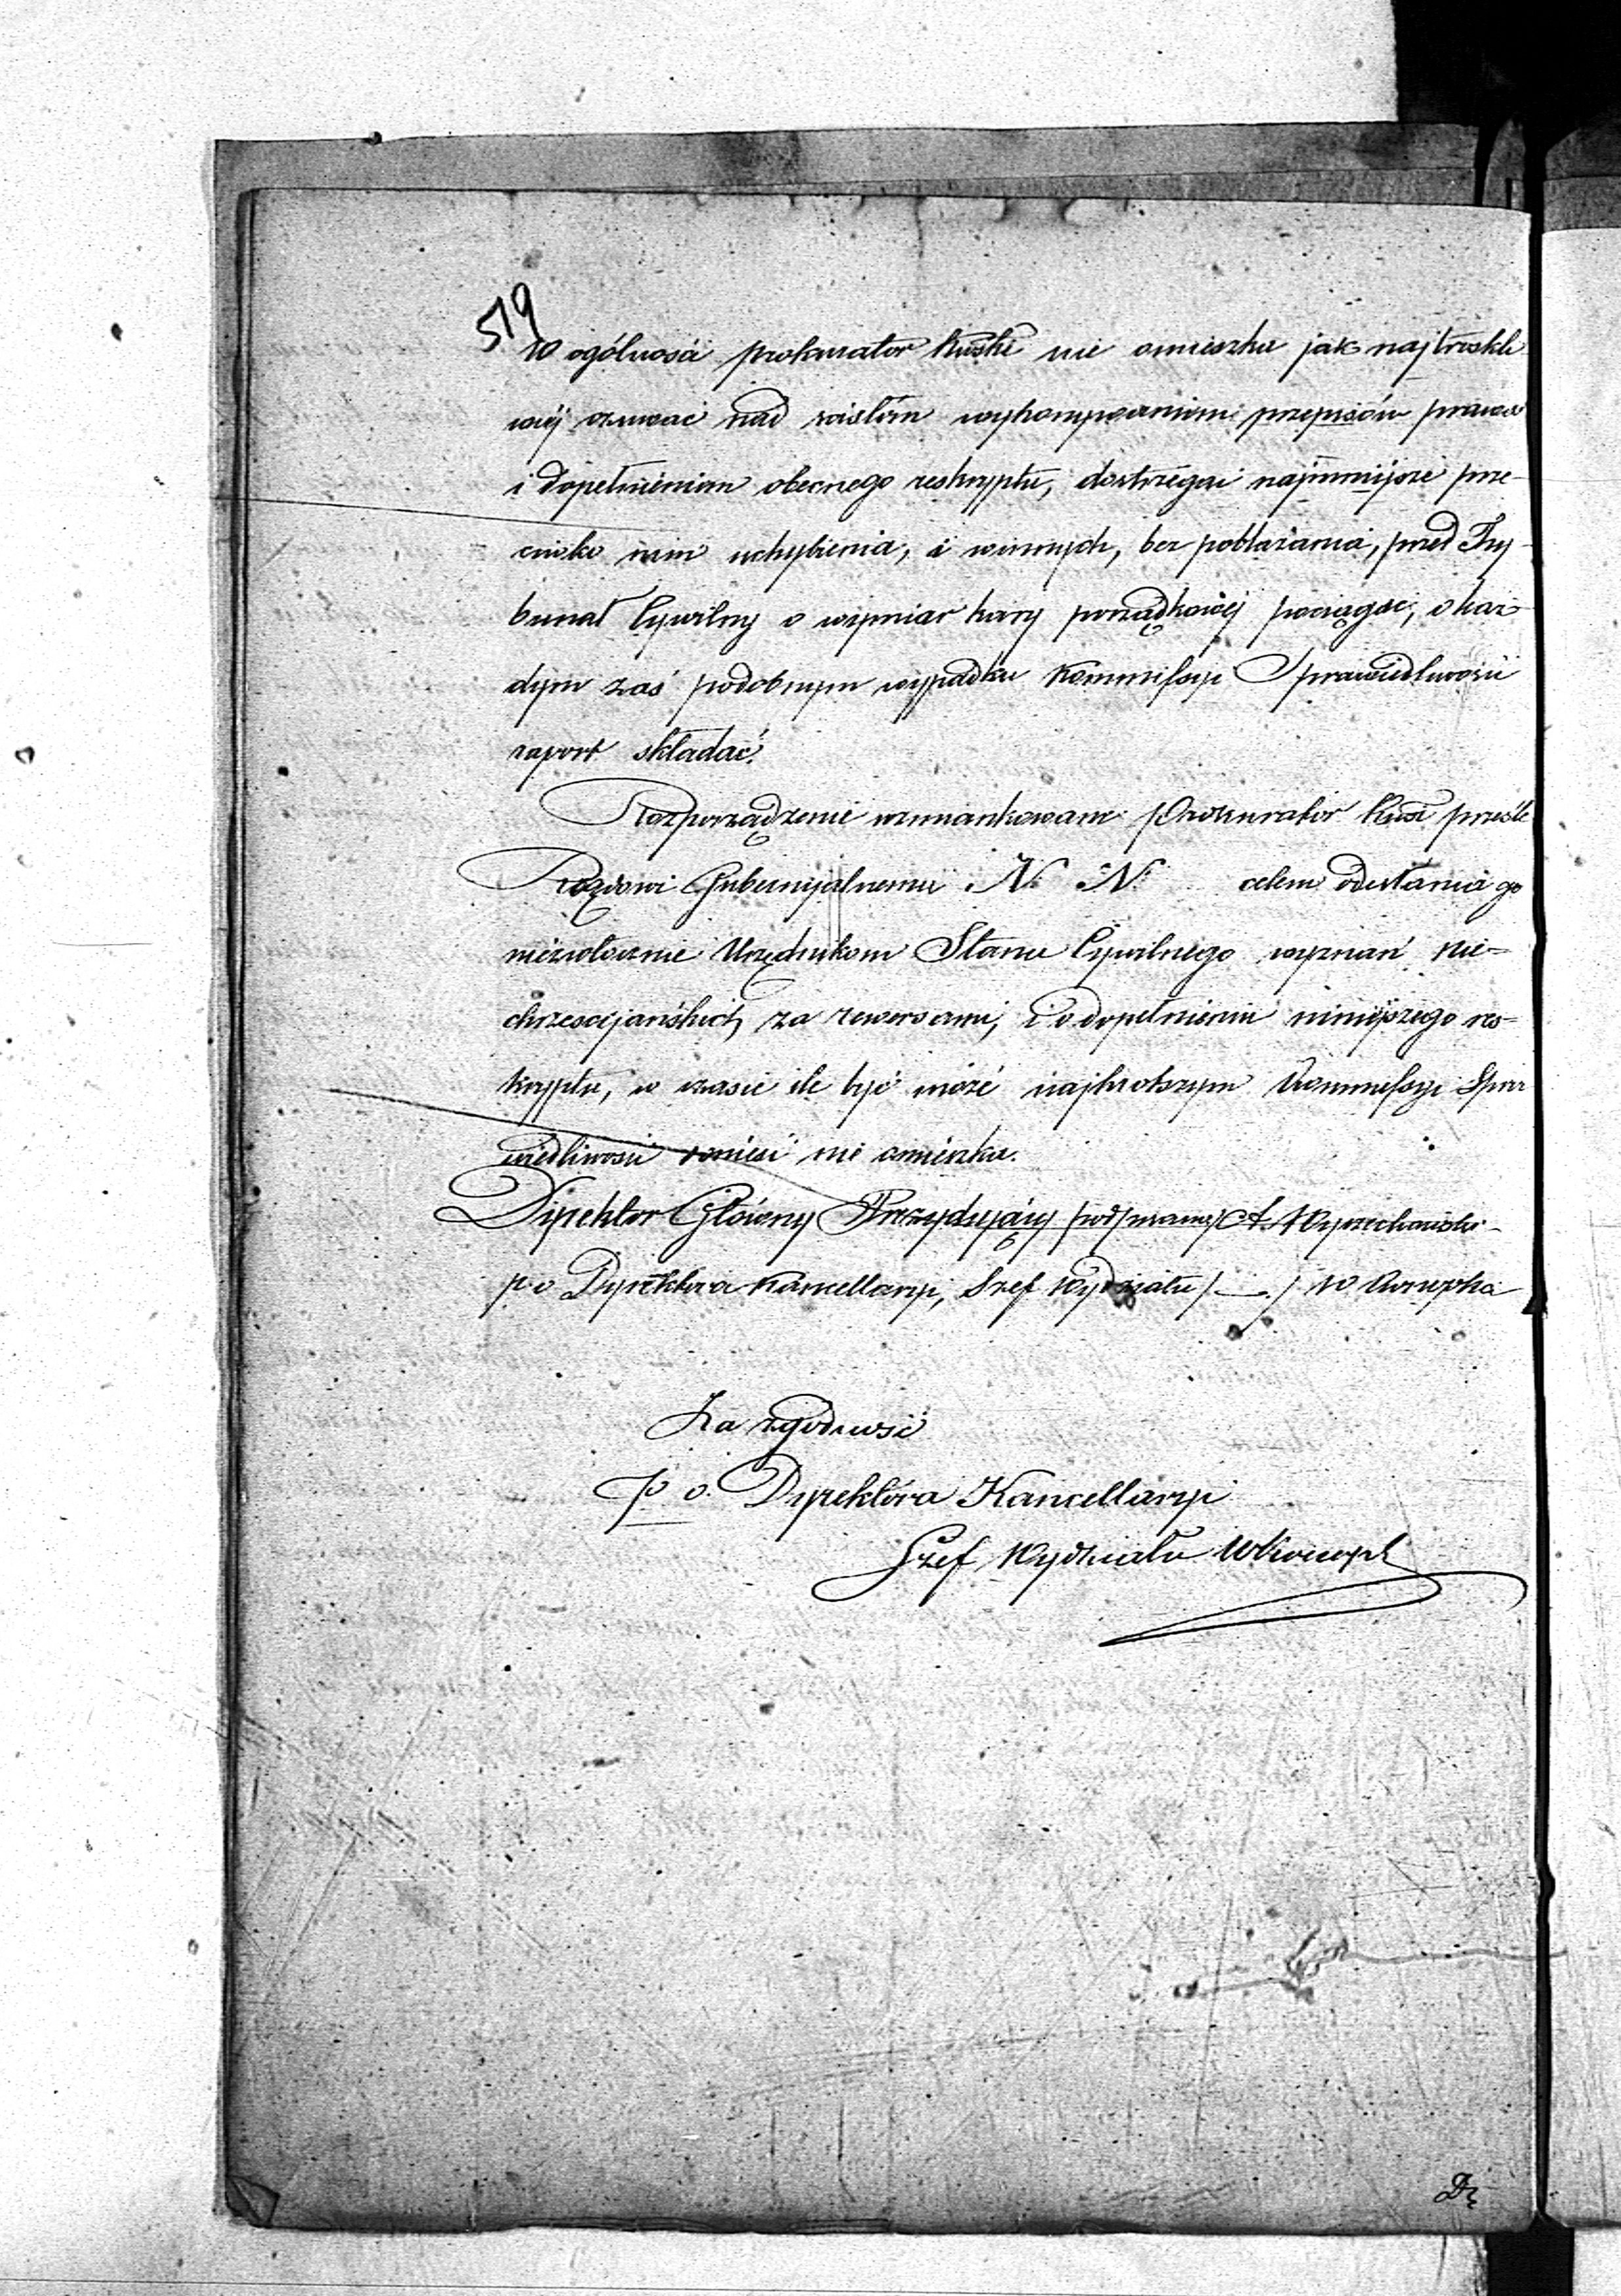 519
W ogólności prokurator Królski nie omieszka jak najtroskli
wiéj czuwać nad ścisłém wykonywaniem przepisów prawa
i dopełnieniem obecnego reskryptu, dostrzegać najmniejsze prze-
ciwko nim uchybienia, i winnych, bez pobłażania, przed Try-
bunał Cywilny o wymiar kary porządkowéj pociągać, o każ-
dym zaś podobnym wypadku Kommissyi Sprawiedliwości
raport składać.
Rozporządzenie wzmiankowane Prokurator prześle
Rządowi Gubernijalnemu N. N. celem odesłania go
niezwłocznie Urzędnikom Stanu Cywilnego wyznań nie-
chrześcijańskich, za rewersami, i o dopełnieniu niniéjszego res-
kryptu, w czasie ile być może najkrótszym Kommissyi Spra
wiedliwości donieść nie omieszka.
Dyrektor Główny Prezydujący /podpisany/ A. Wyczechowski -
p o Dyrektora Kancellaryi, Szef Wydziału /—/ W
Za zgodność
p. o. Dyrektora Kancellaryi
Szef Wydziału